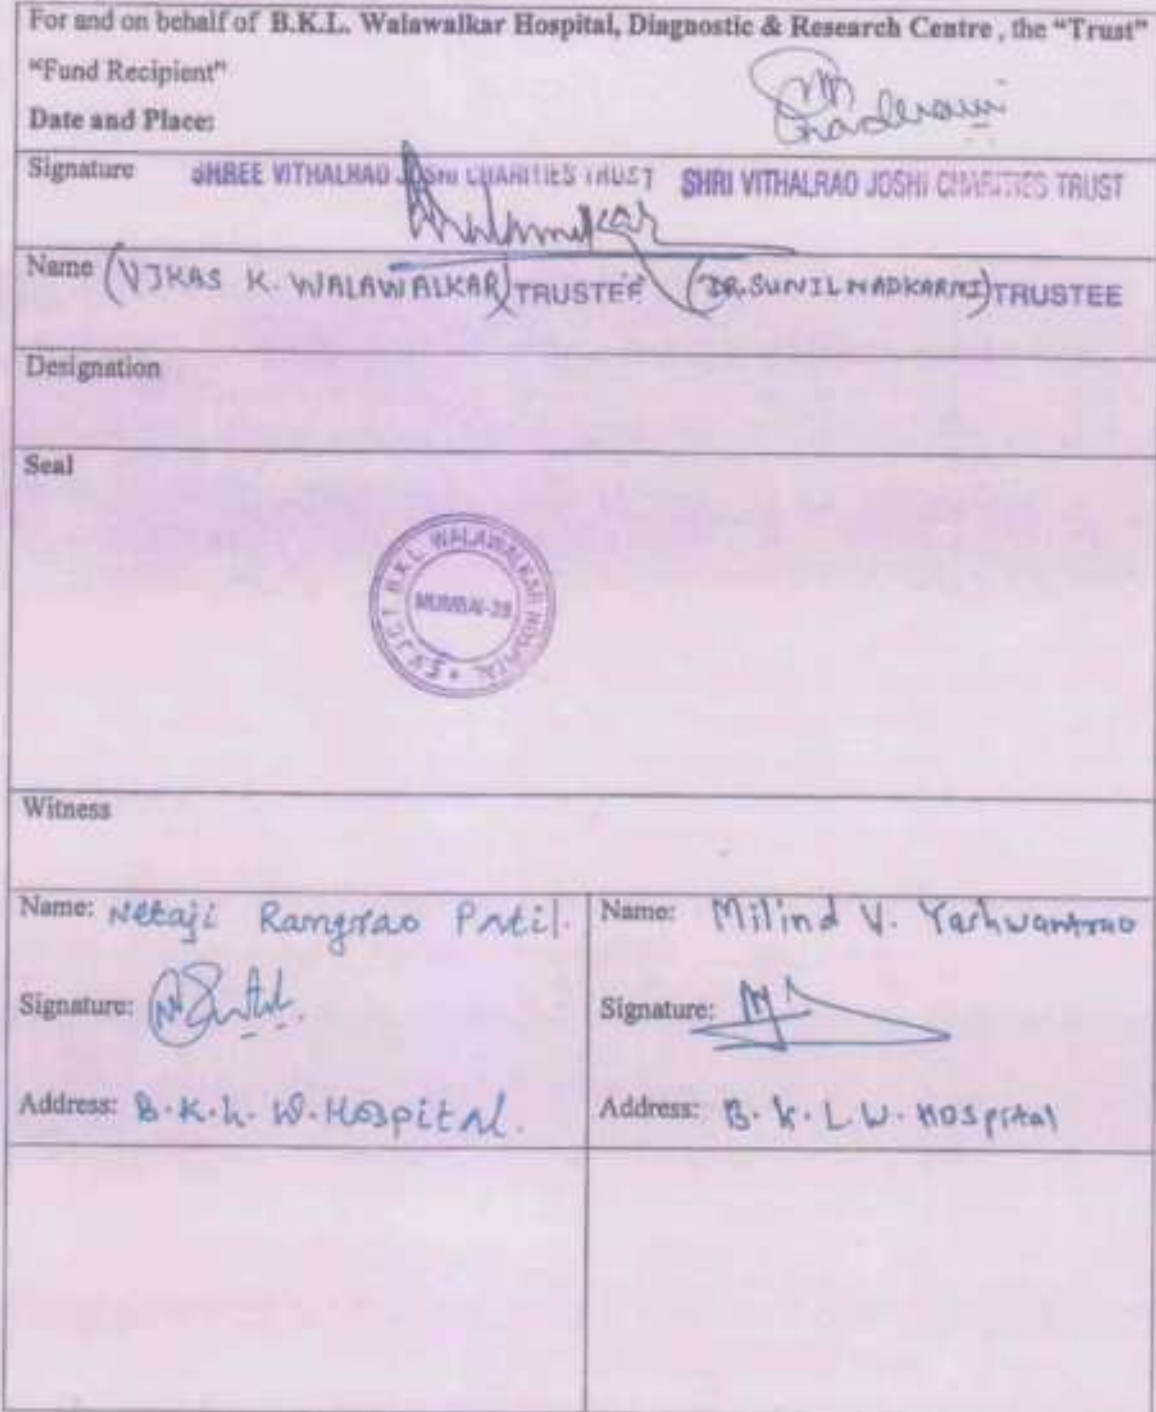 For and on behalf of B.K.L. Walawalkar Hospital, Diagnostic & Research Centre , the “Trust”
“Fund Recipient”
Date and Place:
Signature SHREE VITHALRAO JOSHI CHARITIES TRUST SHRI VITHALRAO JOSHI CHARITIES TRUST
Name (VIKAS K. WALAWALKAR) TRUSTEE (DR. SUNIL NADKARNI) TRUSTEE
Designation
Seal
S.V.J.C.T. B.K.L. WALAWALKAR HOSPITAL
MUMBAI-28
Witness
Name: Netaji Rangrao Patil. Name: Milind V. Yashwantrao
Signature: Signature:
Address: B.K.L.W. Hospital. Address: B.K.L.W. Hospital